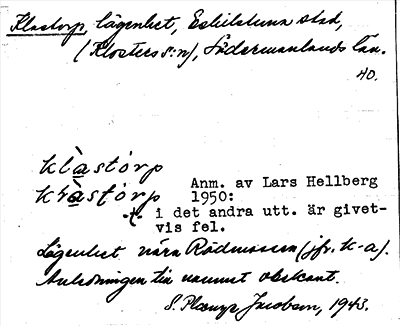 Klastorp, lägenhet, Eskilstuna stad,
(Klosters s:n), Södermanlands län.
40.
klàstórp
kràstórp
Anm. av Lars Hellberg
1950:
i det andra utt. är givet-
vis fel.
Lägenhet nära Rådmossen (jfr. k-a).
Anledningen till namnet obekant.
S. Jacobsen, 1943.